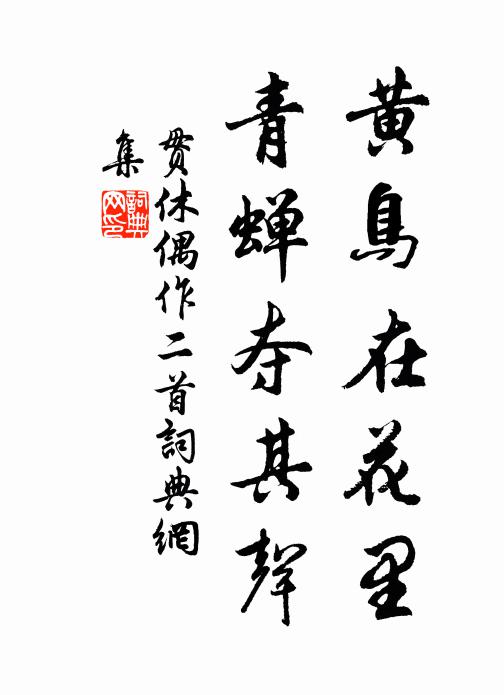 黄鳥在花里
青蝉夺其聲
貫休偶作二首詞典網
集
詞典
网印